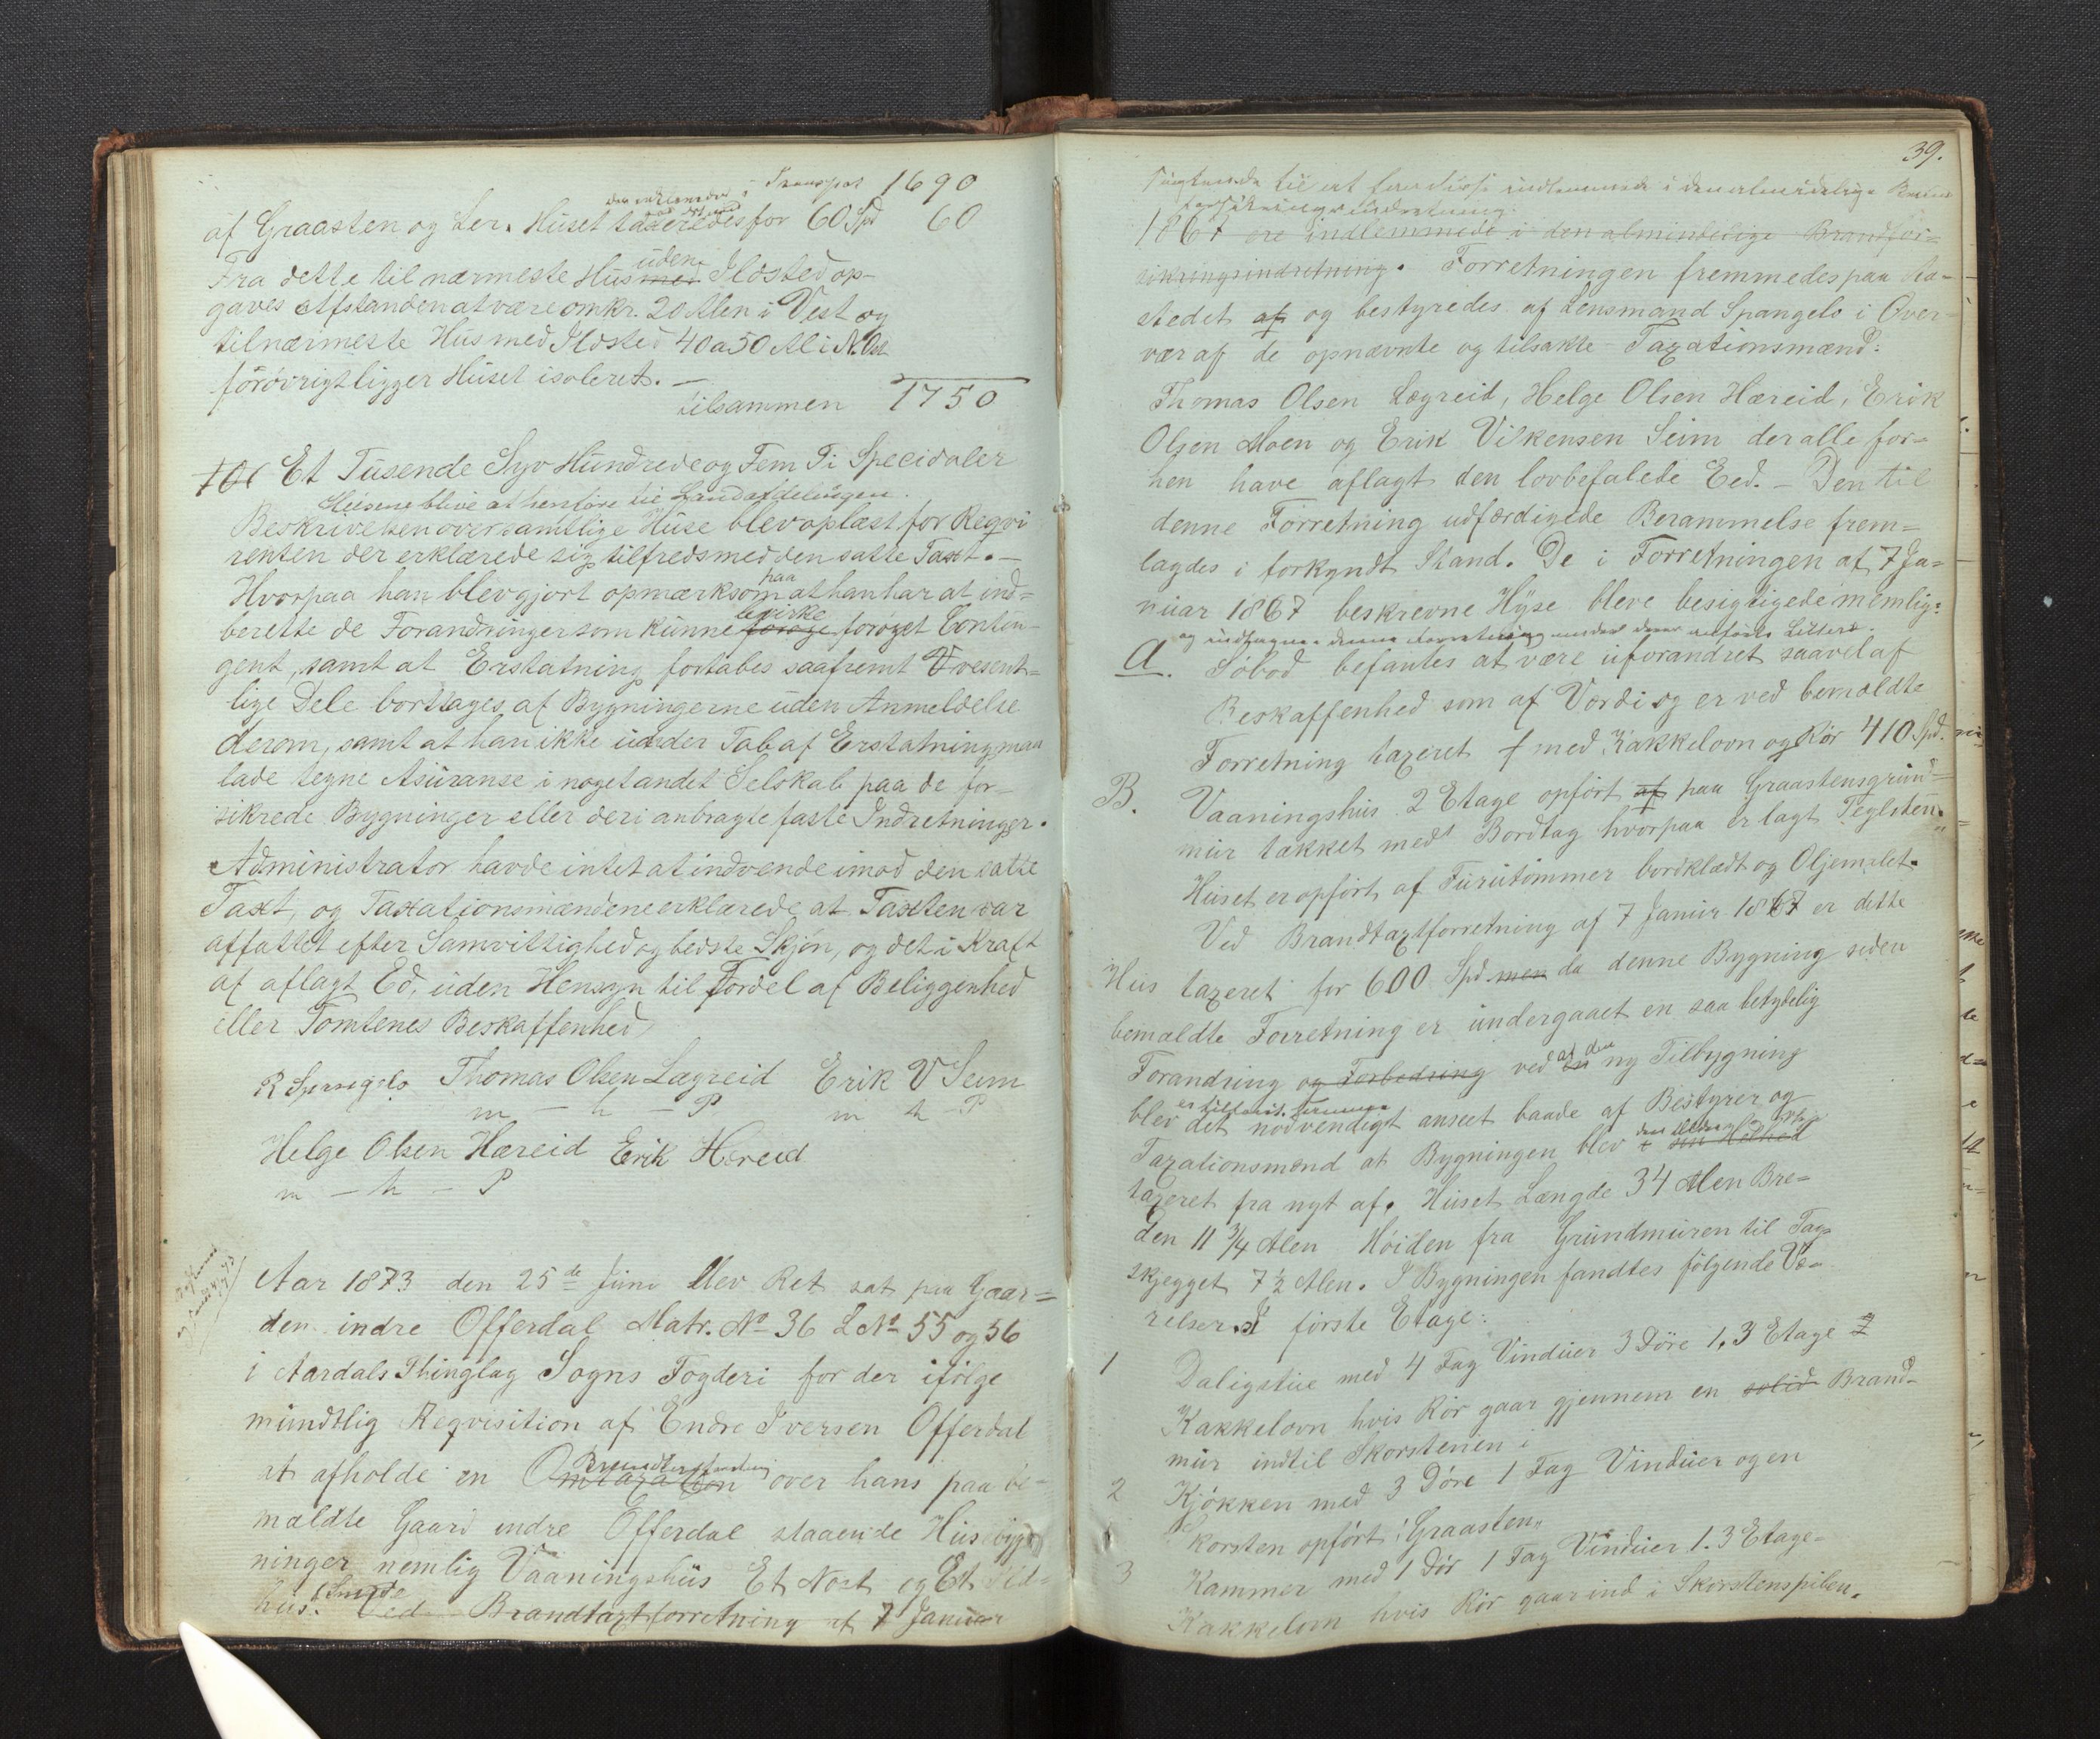 Transport 1690
af Graasten og Ler. Huset taxeredes for 60 Spd 60
uden
Fra dette til nærmeste Hus med Ildsted op-
gaves Afstanden at være omkr. 20 Alen i Vest og
til nærmeste Hus med Ildsted 40 a 50 Al i N. Ost
forøvrigt ligger Huset isoleret. —
tilsammen 1750
Et Tusende Syv Hundrede og Fem Ti Specidaler
Husene blive at henføre til Landafdelingen.
Beskrivelsen over samtlige Huse blev oplæst for Reqvi
renten der erklærede sig tilfreds med den satte Taxt. —
paa
Hvorpaa han blev gjort opmærksom at han har at ind-
bevirke
berette de Forandringer som kunne forøge forøget Contin-
gent, samt at Erstatning fortabes saafremt væsent-
lige Dele borttages af Bygningerne uden Anmeldelse
derom, samt at han ikke under Tab af Erstatning maa
lade tegne Asuranse i noget andet Selskab paa de for-
sikrede Bygninger eller deri anbragte faste Indretninger.
Administrator havde intet at indvende imod den satte
Taxt, og Taxationsmændene erklærede at Taxten var
affattet efter Samvittighed og bedste Skjøn, og det i Kraft
af aflagt Ed, uden Hensyn til Fordel af Beliggenhed
eller Tomtenes Beskaffenhed
R Spangelo Thomas Olsen Lægreid Erik V Seim
m – h – P m h – P
Helge Olsen Hæreid Erik Hereid
m – h – P
Aar 1873 den 25de Juni blev Ret sat paa Gaar-
den indre Offerdal Matr. No 36 L No 55 og 56
i Aardals Thinglag Sogns Fogderi for der ifølge
mundtlig Reqvisition af Endre Iversen Offerdal
at afholde en Omtaxation over hans paa be-
mældte Gaard indre Offerdal staaende Husbyg-
ninger nemlig Vaaningshus Et Nost og Et Ild-
hus. Ved Brandtaxtforretning af 7 Januar
39.
til at indlemmede i den almindelige Brand
forsikringsindretning.
1867 ere indlemmede i den almindelige Brandfor-
sikringsindretning. Forretningen fremmedes paa Aa-
stedet af og bestyredes af Lensmand Spangelo i Over-
vær af de opnævnte og tilsakte Taxationsmænd:
Thomas Olsen Lægreid, Helge Olsen Hæreid, Erik
Olsen Moen og Erik Vilkensen Seim der alle for-
hen have aflagt den lovbefalede Eed. — Den til
denne Forretning udfærdigede Berammelse frem-
lagdes i forkyndt Stand. De i Forretningen af 7 Ja-
nuar 1867 beskrevne Hyse bleve besigtigede nemlig:
og indtagne i denne Forretning under deres anførte Littera.
A. Søbod befantes at være uforandret saavel af
Beskaffenhed som af Værdi og er ved bemældte
Forretning taxeret med Kakkelovn og Rør 410 Spd.
B. Vaaningshus 2 Etage opført af paa Graastensgrund-
mur tækket med Bordtag hvorpaa er lagt Teglsten.
Huset er opført af Furutømmer bordklædt og Oljemalet.
Ved Brandtaxtforretning af 7 Januar 1867 er dette
Hus taxeret for 600 Spd men da denne Bygning siden
bemældte Forretning er undergaaet en saa betydelig
Forandring og Forbedring ved en ny Tilbygning
blev det nødvendigt anseet baade af Bestyrer og
Taxationsmænd at Bygningen blev i sin Helhed
taxeret fra nyt af. Huset Længde 34 Alen Bre-
den 11 3/4 Alen Høiden fra Grundmuren til Tag-
skjegget 7 1/2 Alen. I Bygningen fandtes følgende Væ-
relser. I første Etage:
1 Daligstue med 4 Fag Vinduer 3 Døre 1, 3 Etage
Kakkelovn hvis Rør gaar gjennem en solid Brand-
mur indtil Skorstenen i
2 Kjøkken med 3 Døre 1 Fag Vinduer og en
Skorsten opført i Graasten.
3 Kammer med 1 Dør 1 Fag Vinduer 1. 3 Etage-
Kakkelovn hvis Rør gaar ind i Skorstenspiben.